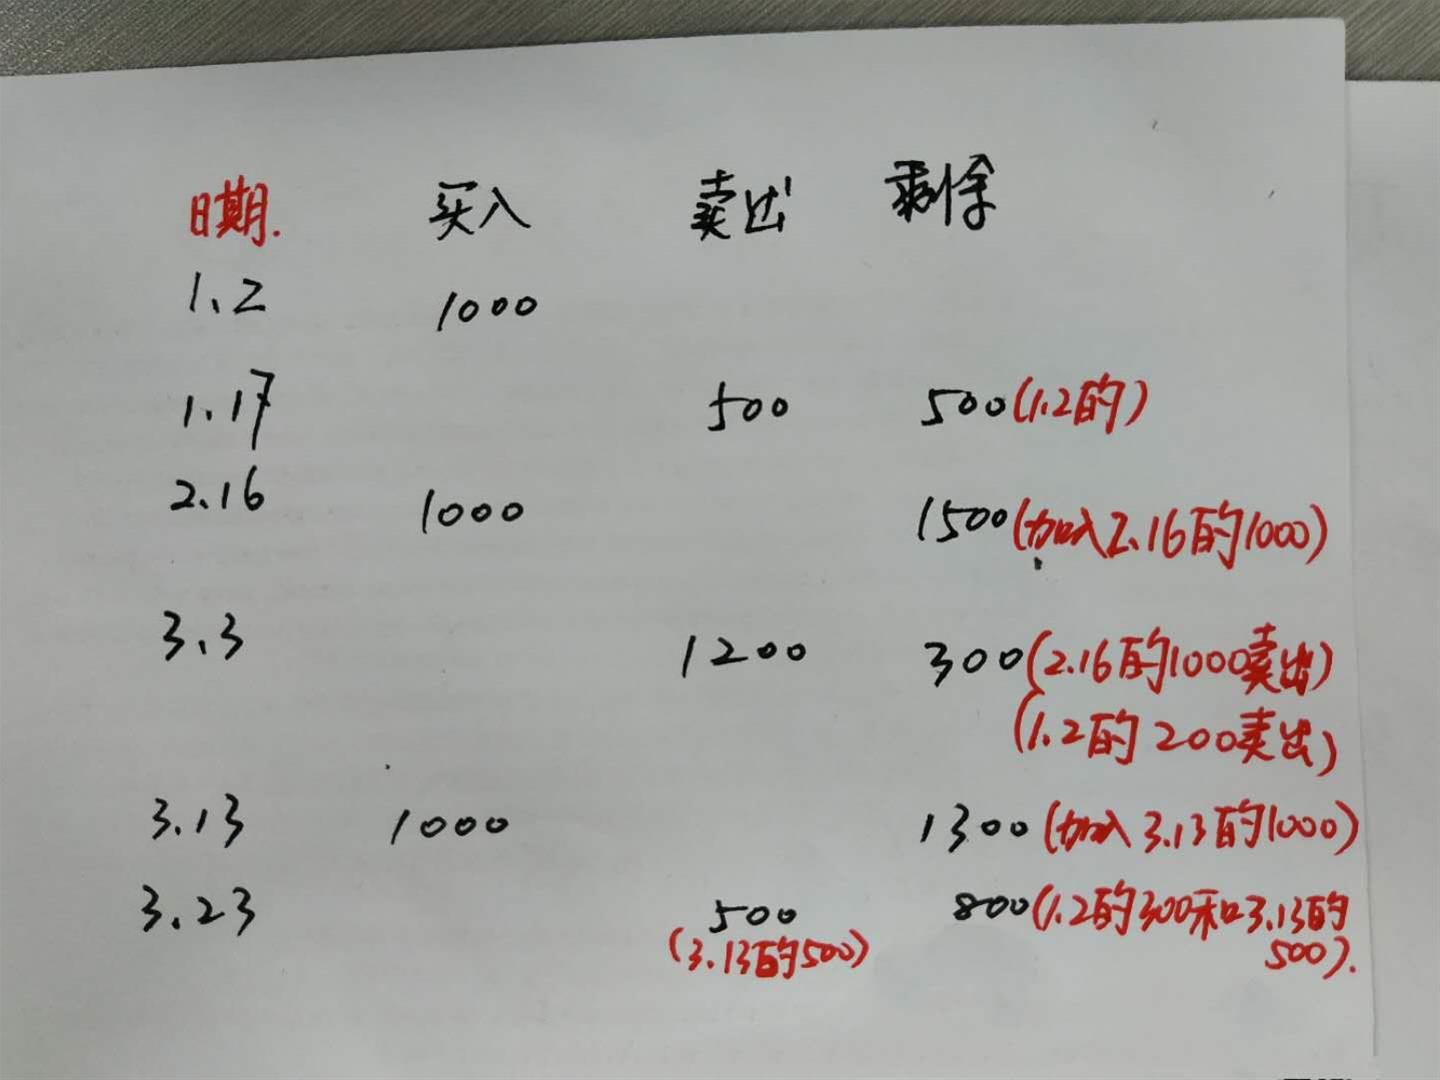 日期. 买入 卖出 剩余
1.2 1000
1.17 500 500(1.2的)
2.16 1000 1500(加入2.16的1000)
3.3 1200 300(2.16的1000卖出)
(1.2的200卖出)
3.13 1000 1300(加入3.13的1000)
3.23 500 800(1.2的300和3.13的
(3.13的500) 500).